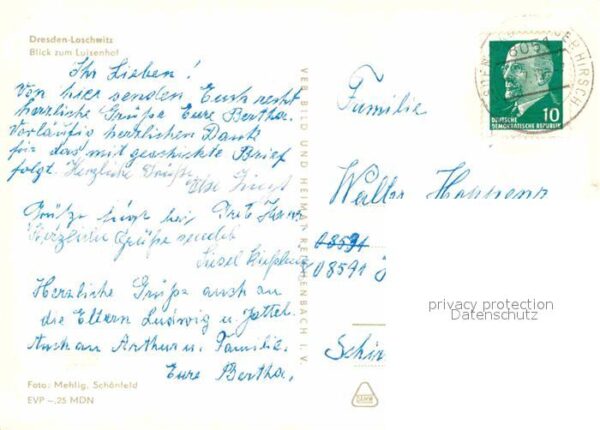 Dresden-Loschwitz
Blick zum Luisenhof
Ihr Lieben!
Von hier senden Euch recht
herzliche Grüße Eure Bertha.
Vorläufig herzlichen Dank
für das mit geschickte Brief
folgt. Herzliche Grüße
herzliche Grüße sendet
Herzliche Grüße auch an
die Eltern Ludwig u. Jettel.
Auch an Arthur u. Familie.
Eure Bertha.
Foto: Mehlig, Schönfeld
EVP –.25 MDN
VEB BILD UND HEIMAT REICHENBACH I. V.
8051
HIRSCH
DEUTSCHE
DEMOKRATISCHE REPUBLIK
10
Familie
Walter
08591
08591
privacy protection
Datenschutz